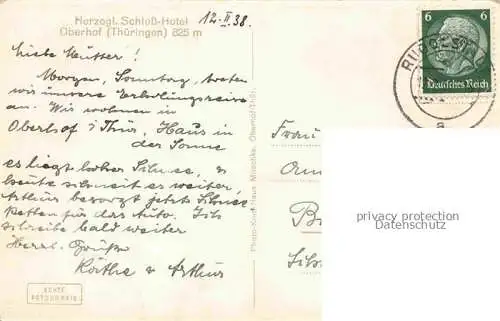 Herzogl. Schloß-Hotel
Oberhof (Thüringen) 825 m
12.II.38.
Liebe Mutter!
Morgen, Sonntag, treten
wir unsere Erholungsreise
an. Wir wohnen in
Oberhof i Thür, Haus in
der Sonne
es liegt hoher Schnee,
heute schneit es weiter,
Arthur besorgt jetzt Schnee
ketten für das Auto. Ich
schreibe bald weiter
Herzl. Grüße
Käthe u Arthur
ECHTE
FOTOGRAFIE
Photo-Kunst-Haus Oberhof (Th.)
6 6
Deutsches Reich
a
Frau
privacy protection
Datenschutz